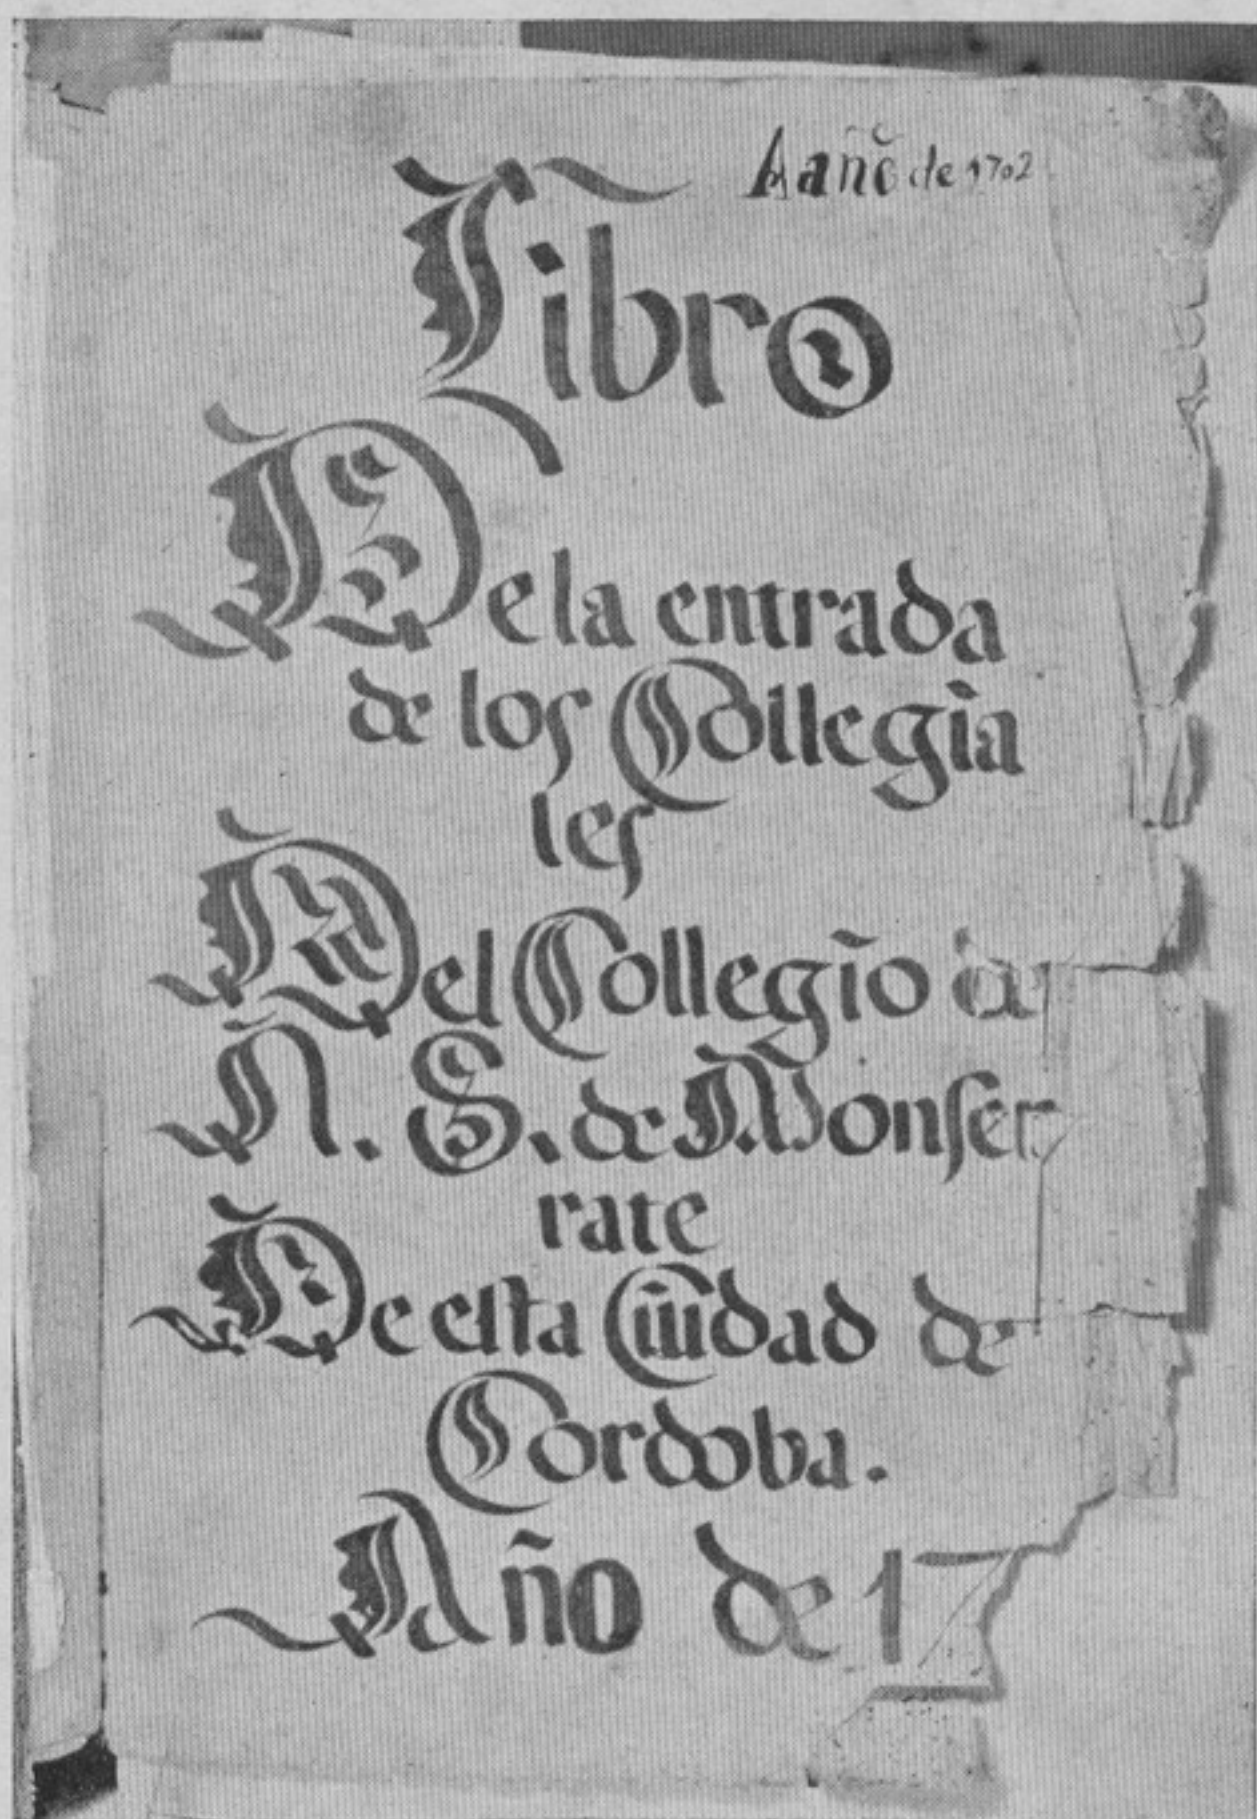 año de 1702
Libro
De la entrada
de los Collegia
les
Del Collegio de
N. S. de Monser
rate
De esta Ciudad de
Cordoba.
Año de 17